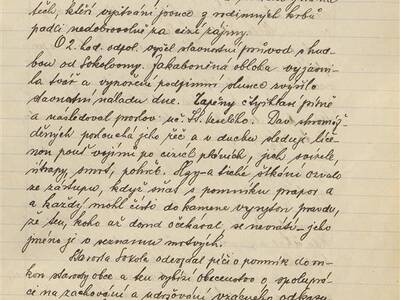 těch, kteří vypítváni jsouce z rodinných krbů
padli nedobrovolně za cizí zájmy.
O 2. hod. odpol. vyšel slavnostní průvod s hud-
bou od Sokolovny. Zakaboněná obloha vyjasni-
la tvář a vynoření podzimní slunce zvýšilo
slavnostní náladu dne. Zapěny Chýlkou písně
a následoval proslov se. Fr. Veselého. Dav shromáž-
děných poslouchá jeho řeč a v duchu sleduje líče-
nou pouť vojínů po cizích pláních, jich svízele,
útrapy, smrt, pohřeb. Hoy-a tiché štkání ozvalo
ze zástupu, když snat s pomníku prapor a
a každý mohl čísti do kamene vyrytou pravdu,
že ten, koho až dosud očekával, se nevrátí-jeho
jméno je v seznamu mrtvých.
Starosta Sokola odevzdal péči o pomník do ru-
kou starosty obce a ten vybízí obecenstvo o spoluprá-
ci na zachování a udržování vzácného odkazu